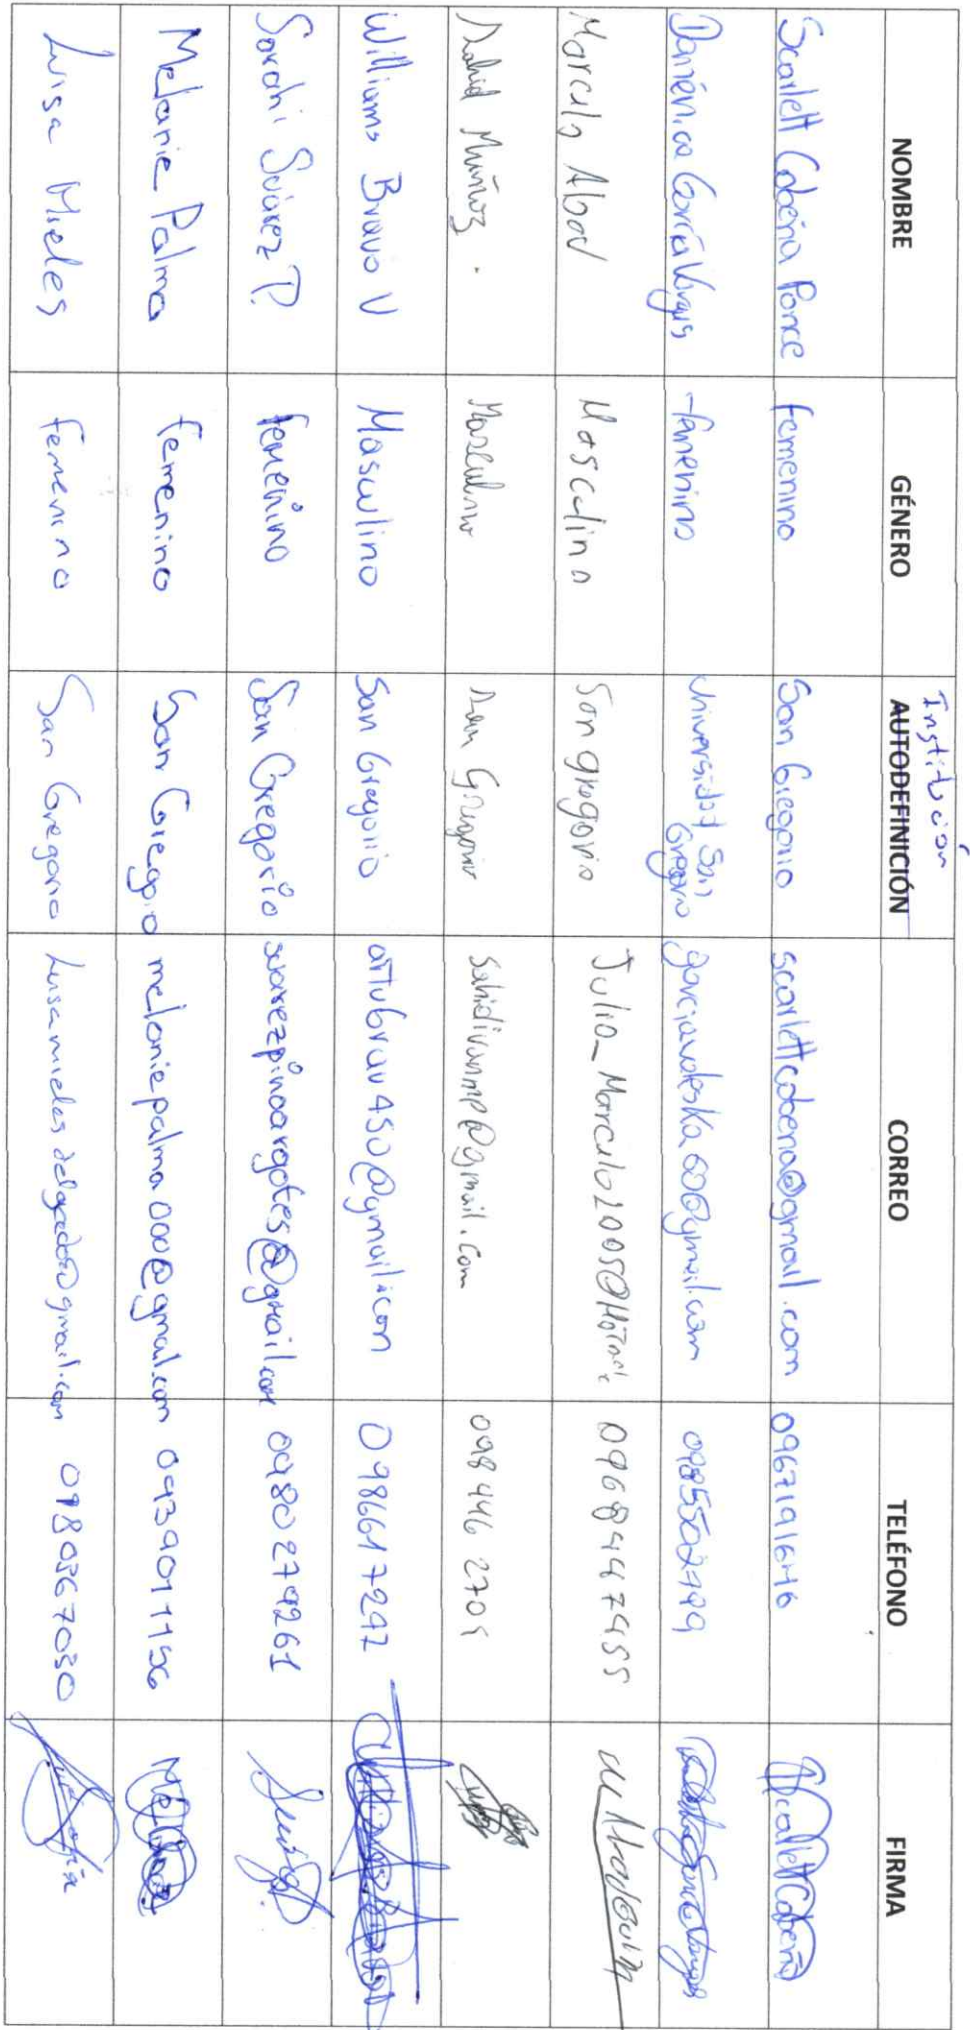 Institución
NOMBRE GÉNERO AUTODEFINICIÓN CORREO TELÉFONO FIRMA
Scarlett Cobeña Ponce femenino San Gregorio scarlettcobena@gmail.com 0967191646
García Vargas femenino Universidad San Gregorio
Marcelo Abad Masculino San gregorio 09689447955
Muñoz. Masculino San Gregorio Sahidivanmp@gmail.com 098 446 2709
Williams Bravo V Masculino San Gregorio artubrav450@gmail.com 0986617297
Sarahi Suárez P. femenino San Gregorio suarezpinoargotes@gmail.com 0980279261
Melanie Palma femenino San Gregorio melaniepalma000@gmail.com 0939011156
Luisa Mieles femenino San Gregorio luisamielesdelgado@gmail.com 0980367030